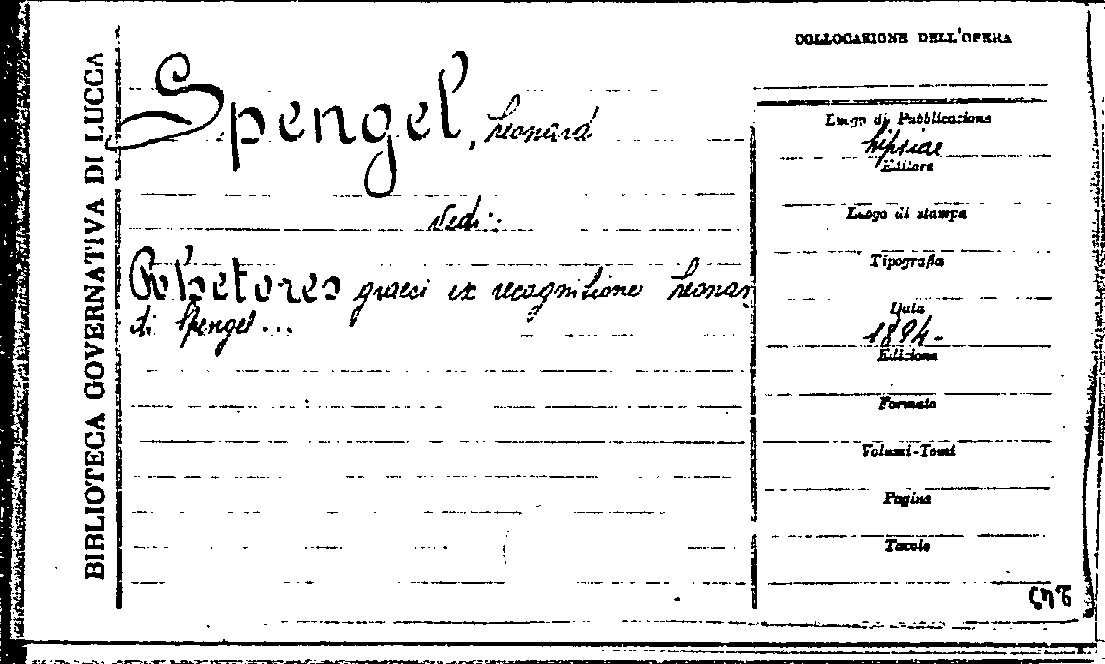 BIBLIOTECA GOVERNATIVA DI LUCCA
Spengel, Leonard
Vedi:
Rhetores graeci ex recagnitione Leonar
di Spengel...
COLLOCAZIONE DELL'OPERA
Luogo di Pubblicazione
Lipsiae
Editore
Luogo di stampa
Tipografia
Data
1894.
Edizione
Formato
Volumi-Tomi
Pagine
Tavole